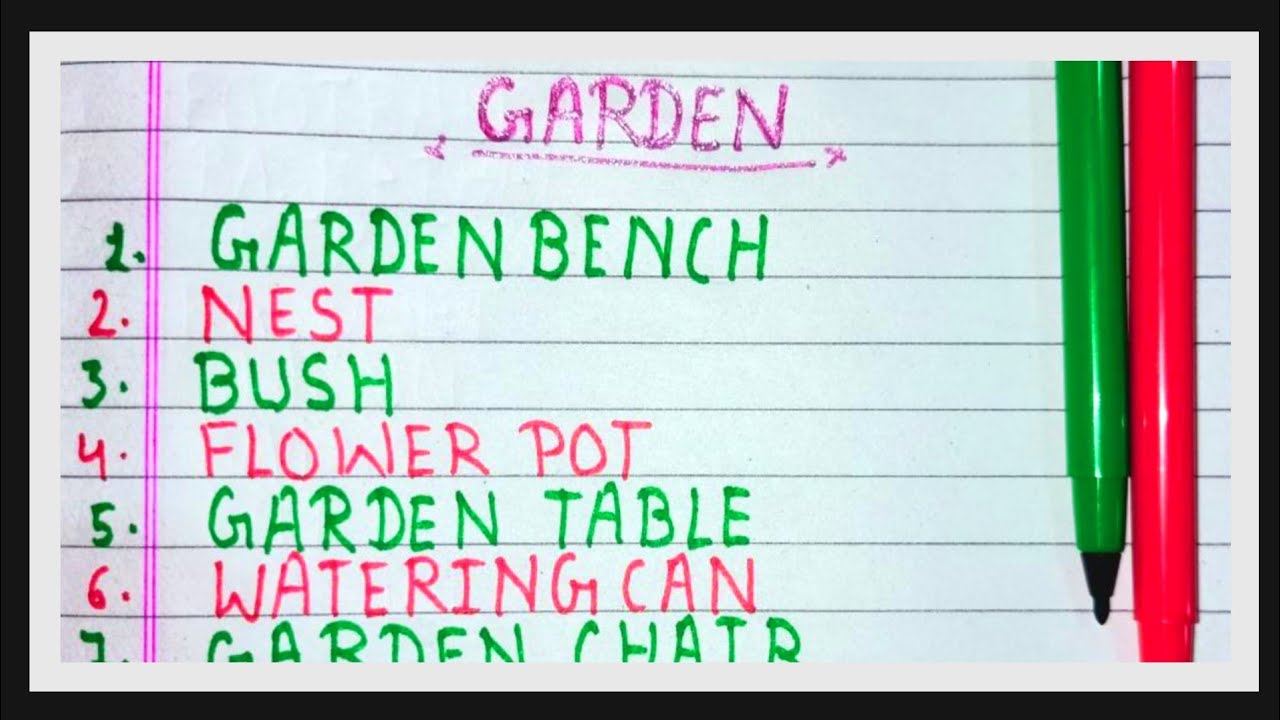 GARDEN
1. GARDEN BENCH
2. NEST
3. BUSH
4. FLOWER POT
5. GARDEN TABLE
6. WATERING CAN
7. GARDEN CHAIR